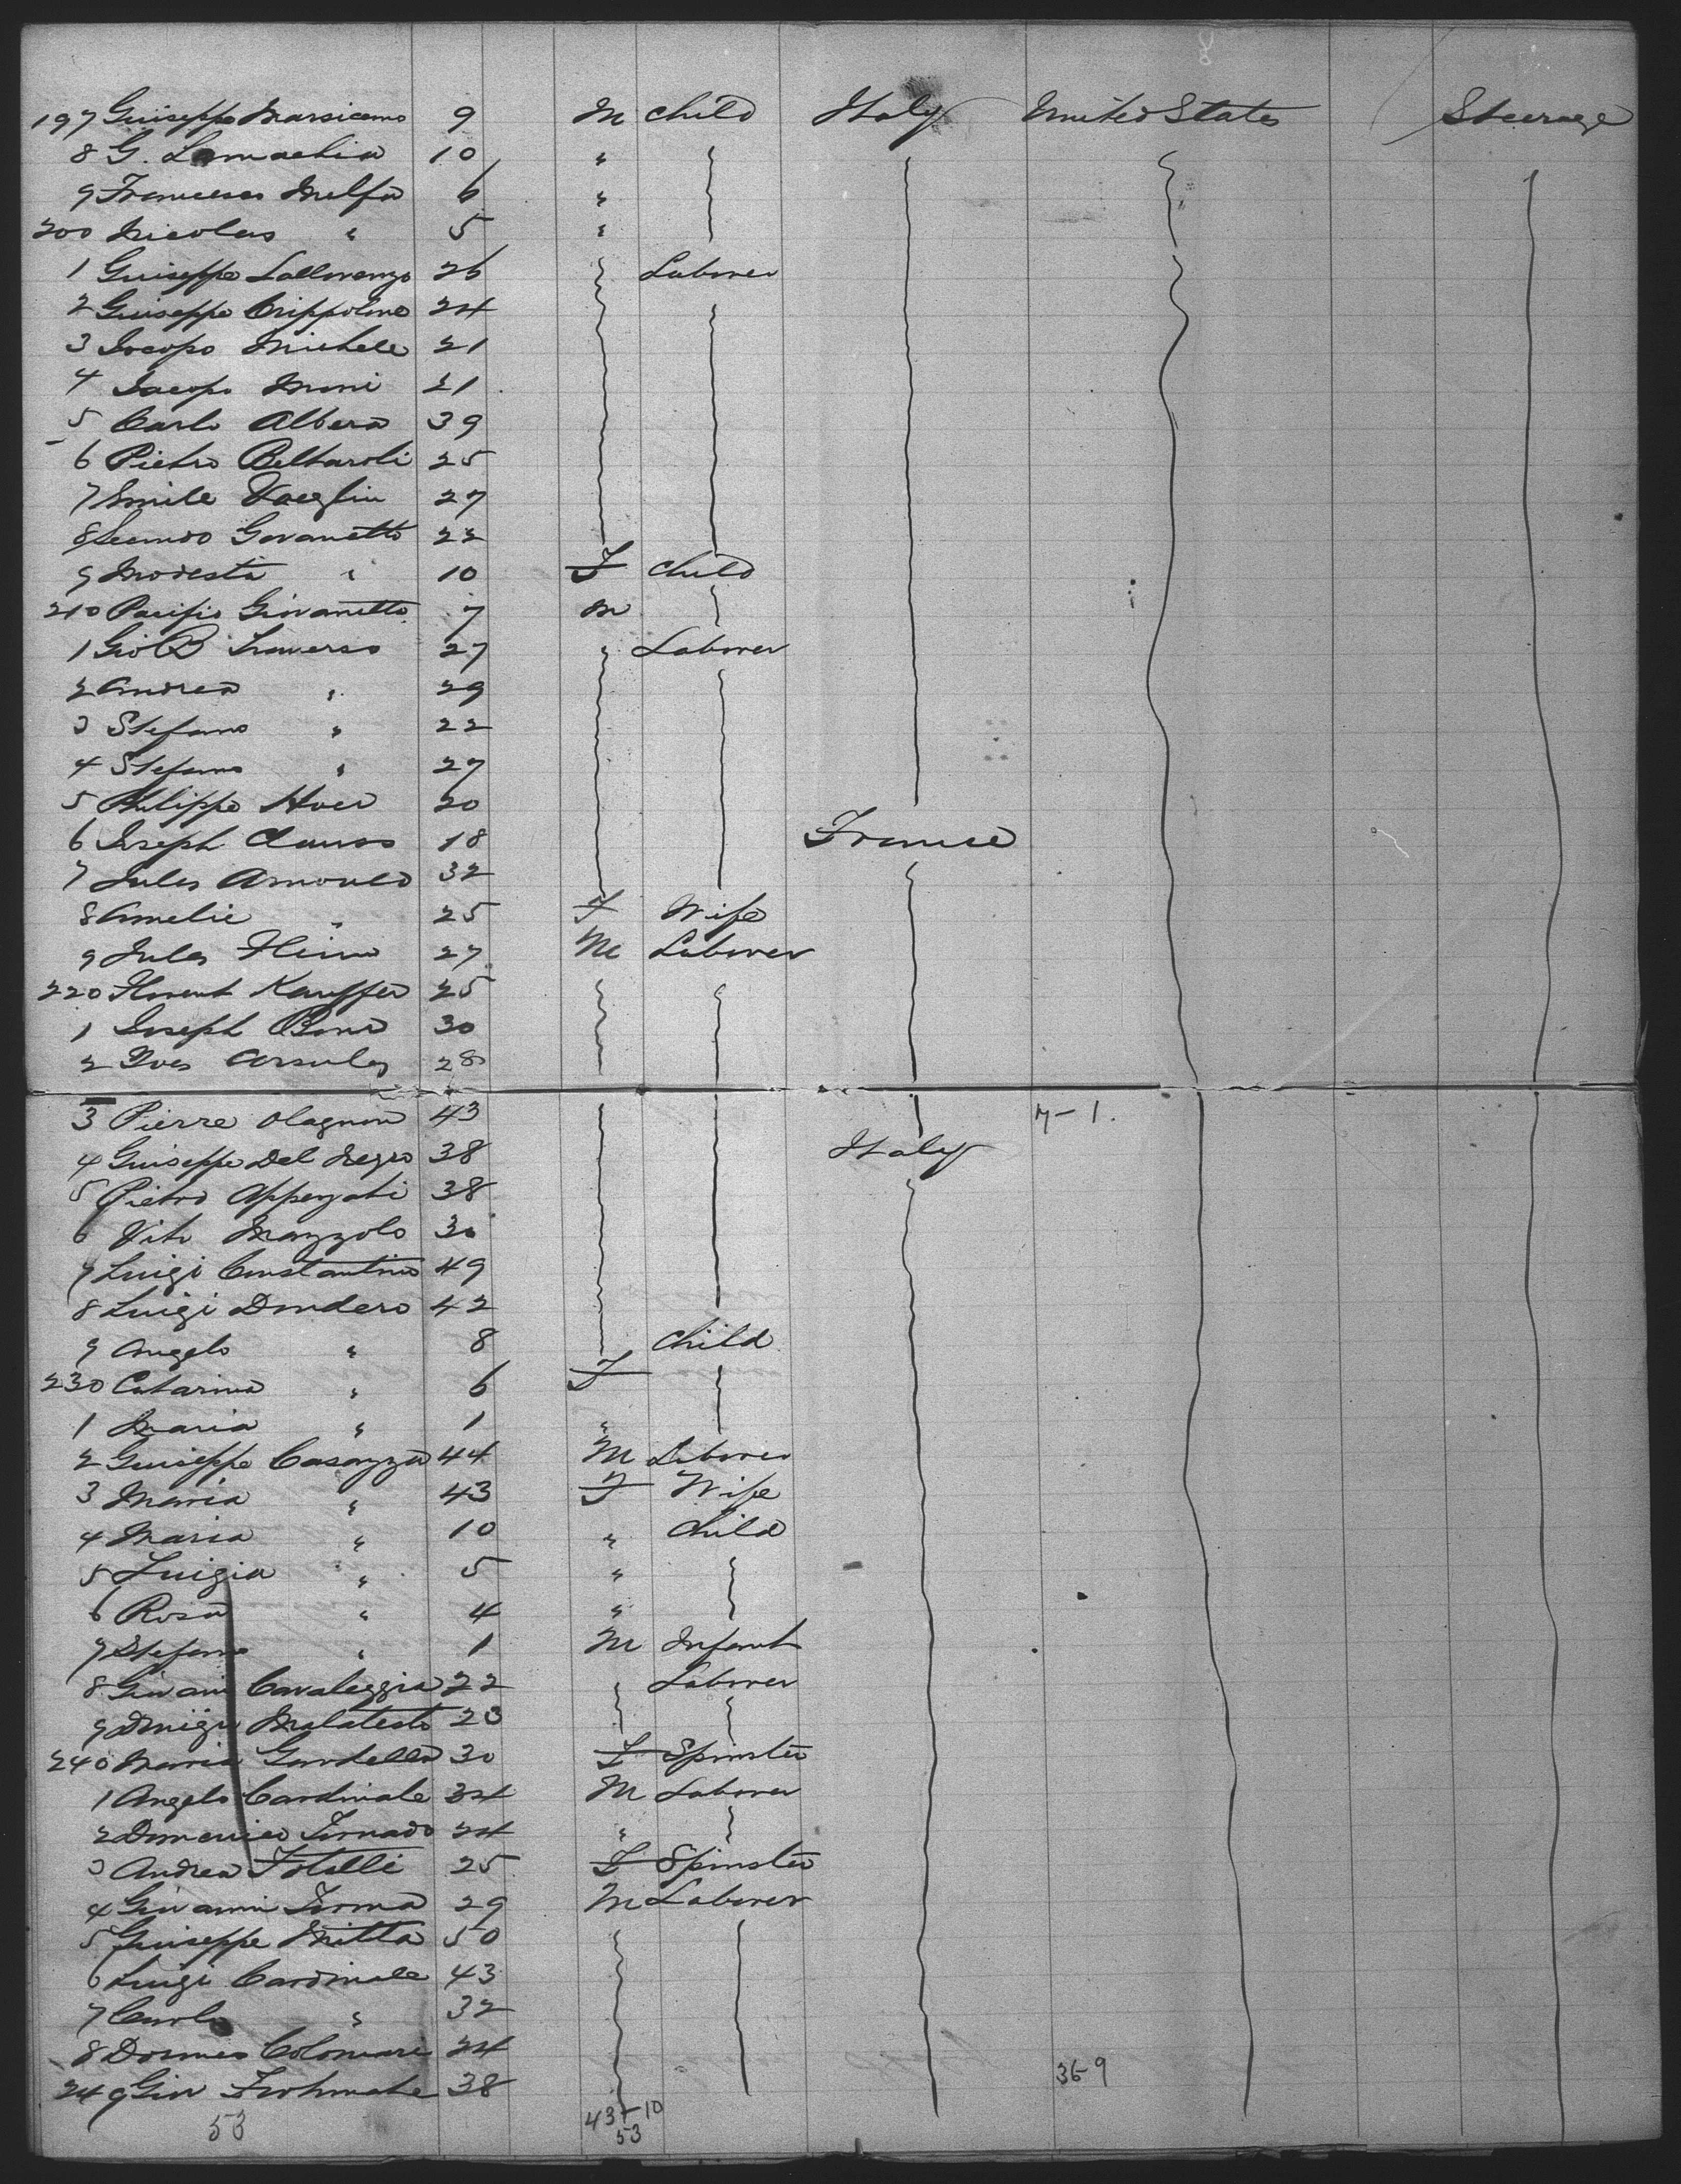 197 Guiseppe Marsicano 9 M Child Italy United States Steerage
8 G. Lamachia 10 "
9 Francesco Melfa 6 "
200 Nicolas " 5 "
1 Guiseppe Lallorenzo 26 Laborer
2 Guiseppe Crippolino 24
3 Iocopo Michele 21
4 Iacopo Moni 21
5 Carlo Albera 39
6 Pietro Beltaroli 25
7 Emile Vaeglin 27
8 Secundo Govanetto 22
9 Modesta " 10 F Child
210 Pacifio Giovanetto 7 M
1 Gio B Traverso 27 " Laborer
2 Andrea " 29
3 Stefano " 22
4 Stefano " 27
5 Philippe 20
6 Joseph Clauss 18 France
7 Jules Arnould 32
8 Amelie " 25 F Wife
9 Jules 27 M Laborer
220 Florent Kauffer 25
1 Joseph 30
2 Yves 28
3 Pierre Olagnon 43 7-1.
4 Guiseppe Del Negro 38 Italy
5 Pietro 38
6 Vito Mazzolo 30
7 Luigi Constantino 49
8 Luigi Dondero 42
9 Angelo " 8 Child
230 Catarina " 6 F
1 Maria " 1 "
2 Guiseppe Casazza 44 M Laborer
3 Maria " 43 F Wife
4 Maria " 10 " Child
5 Luigia " 5 "
6 Rosa " 4 "
7 Stefano " 1 M Infant
8 Giovani Cavaleggia 22 Laborer
9 Malatesto 23
240 Maria Gardella 30 F Spinster
1 Angelo Cardinale 34 M Laborer
2 Domenico Tornado 24 "
3 Andrea Fotelli 25 F Spinster
4 Giovanni Torma 29 M Laborer
5 Guiseppe Mitta 50
6 Luigi Cardinale 43
7 Carlo " 32
8 24
249 Gio 38 36-9
53 43+10
53